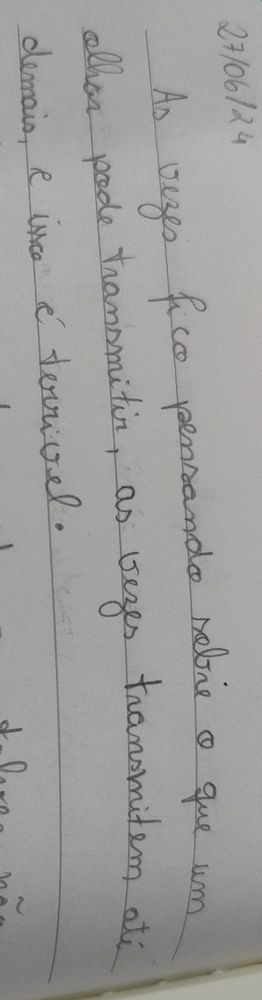 27/06/24
As vezes fico pensando sobre o que um
olhar pode transmitir, as vezes transmitem até
demais, e isso é terrivel.
não